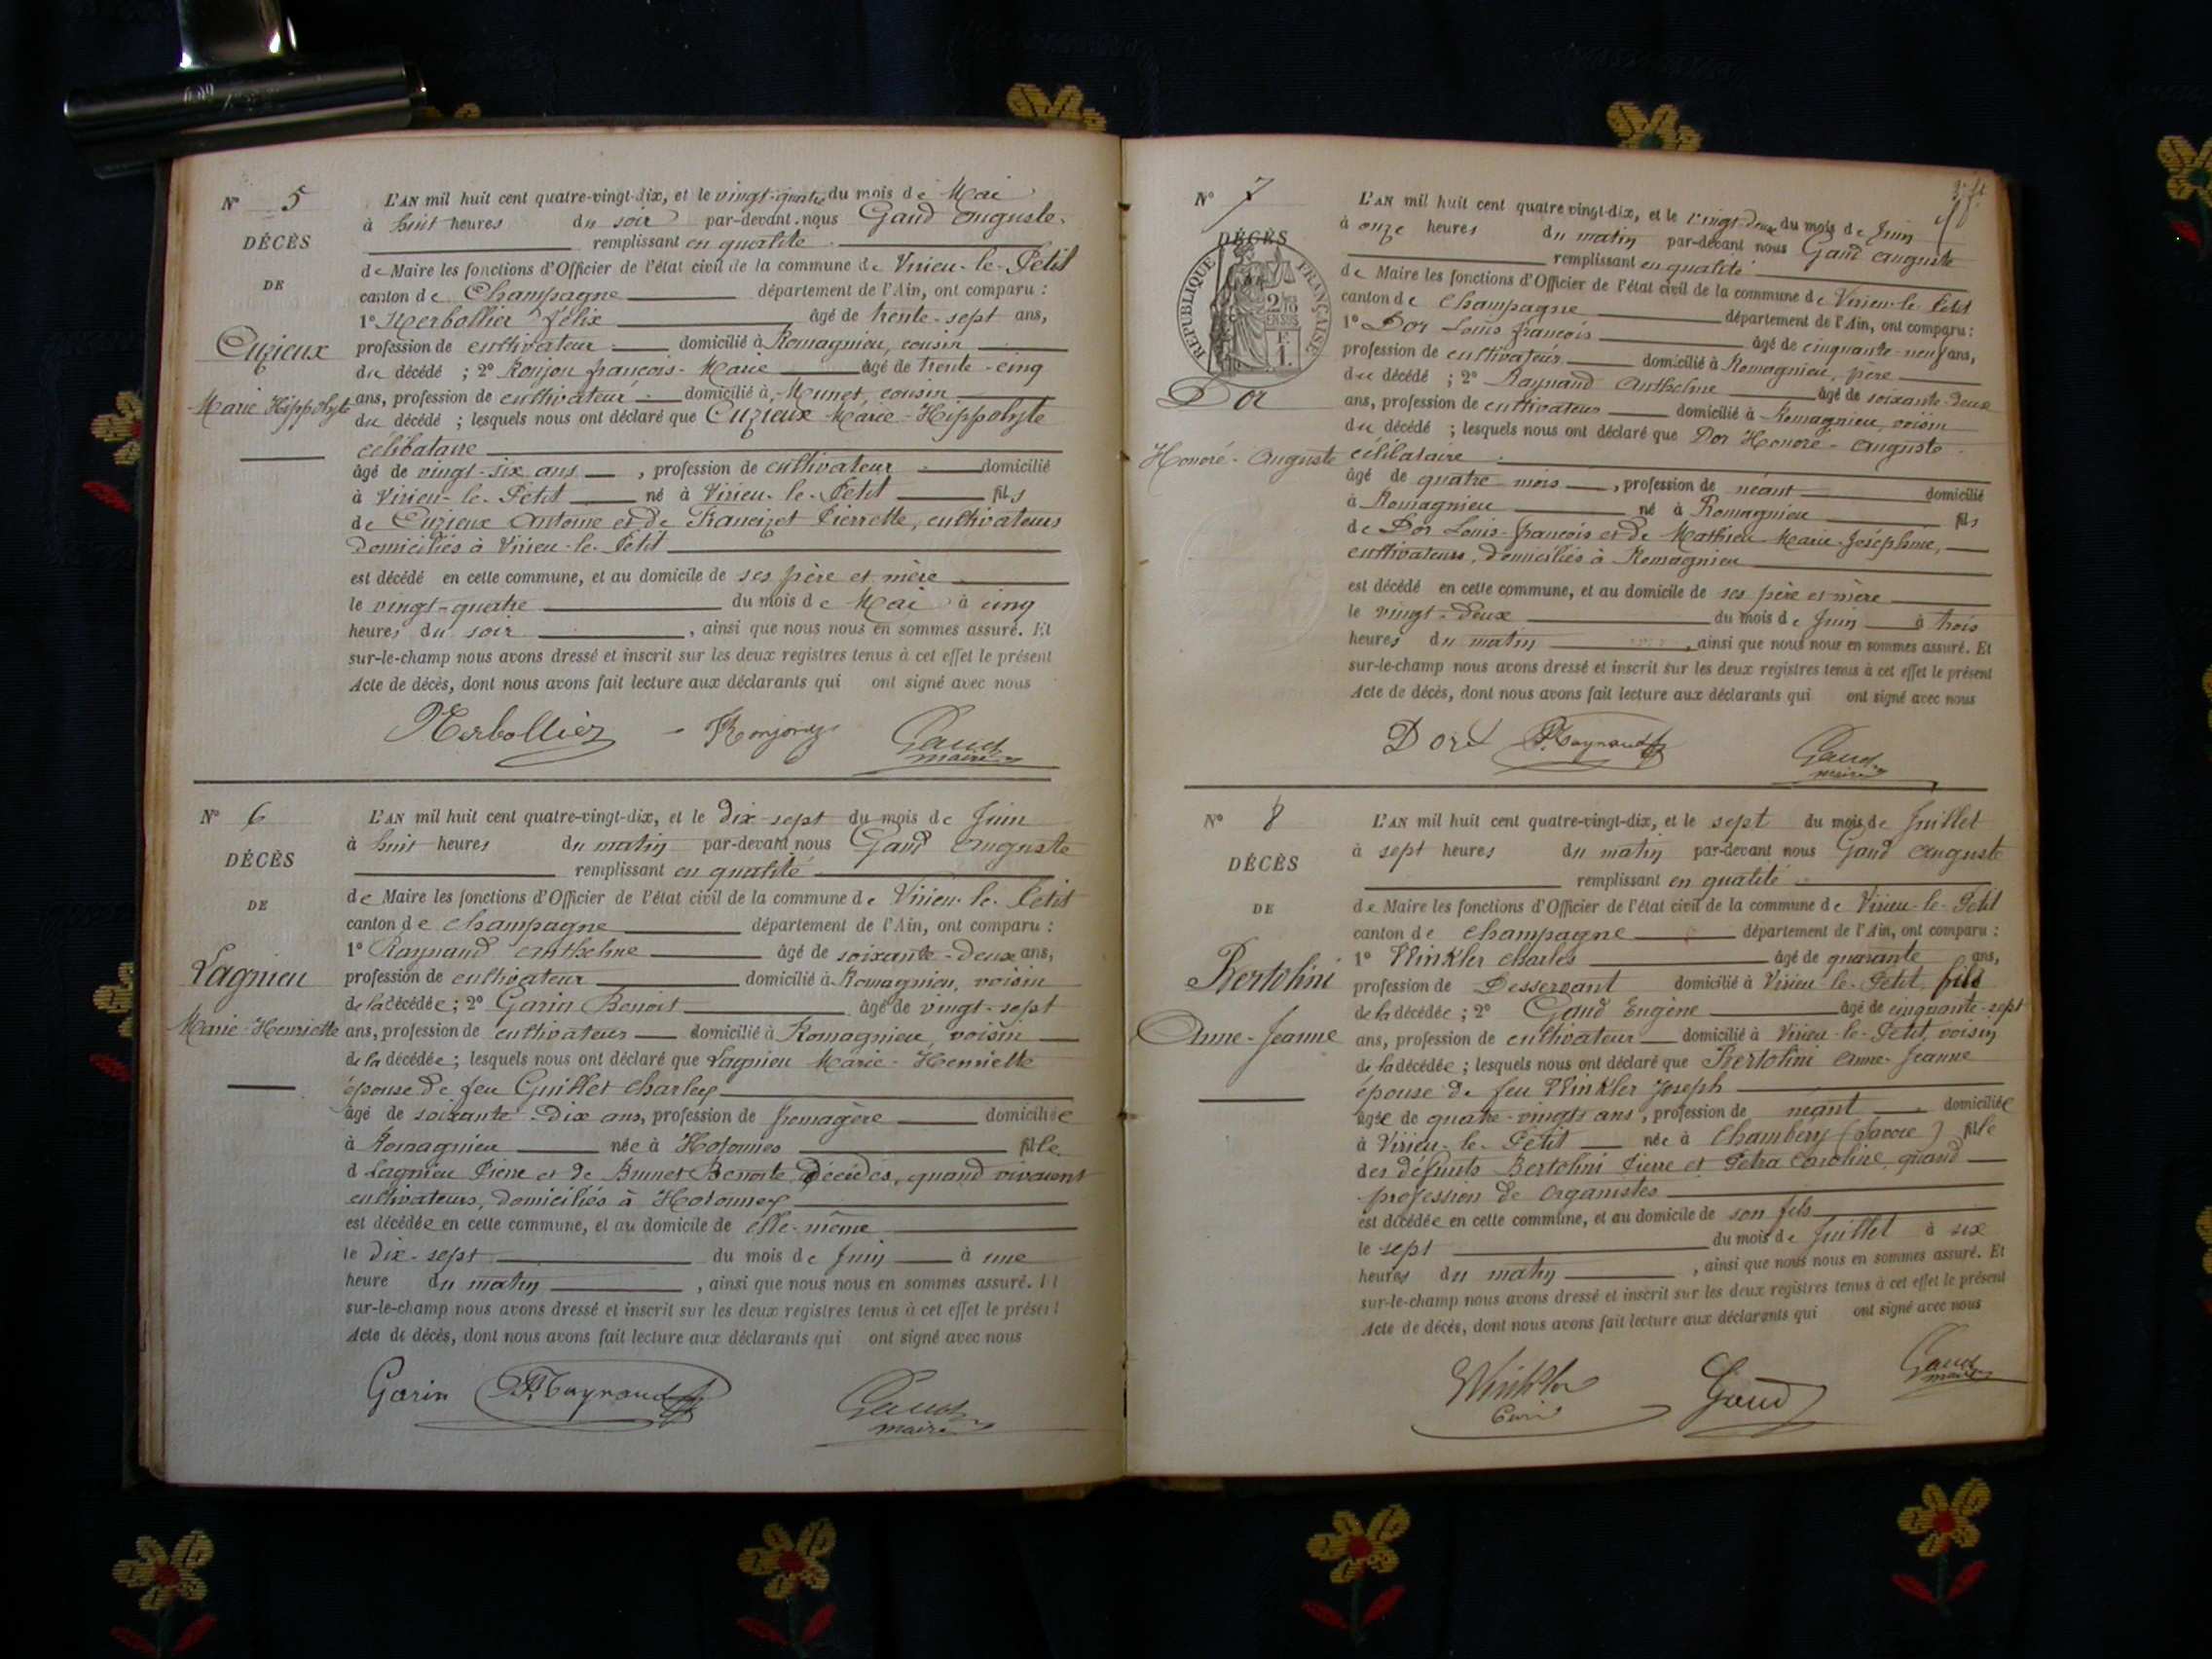 N° 5
DÉCÈS
DE
Cuzieux
Marie Hippolyte
L'AN mil huit cent quatre-vingt-dix, et le vingt-quatre du mois de Mai
à huit heures du soir par-devant nous Gaud Auguste
remplissant en qualité
de Maire les fonctions d'Officier de l'état civil de la commune de Virieu-le-Petit
canton de Champagne département de l'Ain, ont comparu :
1° Merbollier Félix âgé de trente-sept ans,
profession de cultivateur domicilié à Romagnieu, cousin
du décédé ; 2° Ronjon françois-Marie âgé de trente-cinq
ans, profession de cultivateur domicilié à Munet, cousin
du décédé ; lesquels nous ont déclaré que Cuzieux Marie-Hippolyte
célibataire
âgé de vingt-six ans , profession de cultivateur domicilié
à Virieu-le-Petit né à Virieu-le-Petit fils
de Cuzieux Antoine et de Francizet Pierrette, cultivateurs
domiciliés à Virieu-le-Petit
est décédé en cette commune, et au domicile de ses père et mère
le vingt-quatre du mois de Mai à cinq
heures du soir , ainsi que nous nous en sommes assuré. Et
sur-le-champ nous avons dressé et inscrit sur les deux registres tenus à cet effet le présent
Acte de décès, dont nous avons fait lecture aux déclarants qui ont signé avec nous
Merbollier Ronjon Gaud
maire
N° 6
DÉCÈS
DE
Lagnieu
Marie-Henriette
L'AN mil huit cent quatre-vingt-dix, et le dix-sept du mois de Juin
à huit heures du matin par-devant nous Gaud Auguste
remplissant en qualité
de Maire les fonctions d'Officier de l'état civil de la commune de Virieu-le-Petit
canton de Champagne département de l'Ain, ont comparu :
1° Raynaud Anthelme âgé de soixante-deux ans,
profession de cultivateur domicilié à Romagnieu, voisin
de la décédée ; 2° Garin Benoit âgé de vingt-sept
ans, profession de cultivateur domicilié à Romagnieu, voisin
de la décédée ; lesquels nous ont déclaré que Lagnieu Marie-Henriette
épouse de feu Guillet Charles
âgé de soixante-dix ans, profession de fromagère domiciliée
à Romagnieu née à Hotonnes fille
d Lagnieu Pierre et de Brunet Benoite, décédés, quand vivaient
cultivateurs, domiciliés à Hotonnes
est décédée en cette commune, et au domicile de elle-même
le dix-sept du mois de Juin à une
heure du matin , ainsi que nous nous en sommes assuré. Et
sur-le-champ nous avons dressé et inscrit sur les deux registres tenus à cet effet le présent
Acte de décès, dont nous avons fait lecture aux déclarants qui ont signé avec nous
Garin Raynaud Gaud
maire
N° 7
DÉCÈS
RÉPUBLIQUE FRANÇAISE
2/10
EN SUS
F.
1.
Dor
Honoré-Auguste
L'AN mil huit cent quatre vingt-dix, et le vingt-deux du mois de Juin
à onze heures du matin par-devant nous Gaud Auguste
remplissant en qualité
de Maire les fonctions d'Officier de l'état civil de la commune de Virieu-le-Petit
canton de Champagne département de l'Ain, ont comparu :
1° Dor Louis françois âgé de cinquante-neuf ans,
profession de cultivateur domicilié à Romagnieu, père
du décédé ; 2° Raynaud Anthelme âgé de soixante-deux
ans, profession de cultivateur domicilié à Romagnieu, voisin
du décédé ; lesquels nous ont déclaré que Dor Honoré-Auguste
célibataire
âgé de quatre mois , profession de néant domicilié
à Romagnieu né à Romagnieu fils
de Dor Louis-françois et de Mathieu Marie-Joséphine,
cultivateurs, domiciliés à Romagnieu
est décédé en cette commune, et au domicile de ses père et mère
le vingt-deux du mois de Juin à trois
heures du matin , ainsi que nous nous en sommes assuré. Et
sur-le-champ nous avons dressé et inscrit sur les deux registres tenus à cet effet le présent
Acte de décès, dont nous avons fait lecture aux déclarants qui ont signé avec nous
Dor Raynaud Gaud
maire
N° 8
DÉCÈS
DE
Bertolini
Anne-Jeanne
L'AN mil huit cent quatre-vingt-dix, et le sept du mois de Juillet
à sept heures du matin par-devant nous Gaud Auguste
remplissant en qualité
de Maire les fonctions d'Officier de l'état civil de la commune de Virieu-le-Petit
canton de Champagne département de l'Ain, ont comparu :
1° Winkler Charles âgé de quarante ans,
profession de Desservant domicilié à Virieu-le-Petit, fils
de la décédée ; 2° Gaud Eugène âgé de cinquante-sept
ans, profession de cultivateur domicilié à Virieu-le-Petit, voisin
de la décédée ; lesquels nous ont déclaré que Bertolini Anne-Jeanne
épouse de feu Winkler Joseph
âgée de quatre-vingts ans , profession de néant domiciliée
à Virieu-le-Petit née à Chambéry (Savoie) fille
des défunts Bertolini Pierre et Petra Caroline, quand
profession de organistes
est décédée en cette commune, et au domicile de son fils
le sept du mois de Juillet à six
heures du matin , ainsi que nous nous en sommes assuré. Et
sur-le-champ nous avons dressé et inscrit sur les deux registres tenus à cet effet le présent
Acte de décès, dont nous avons fait lecture aux déclarants qui ont signé avec nous
Winkler
Curé
Gaud
Gaud
maire